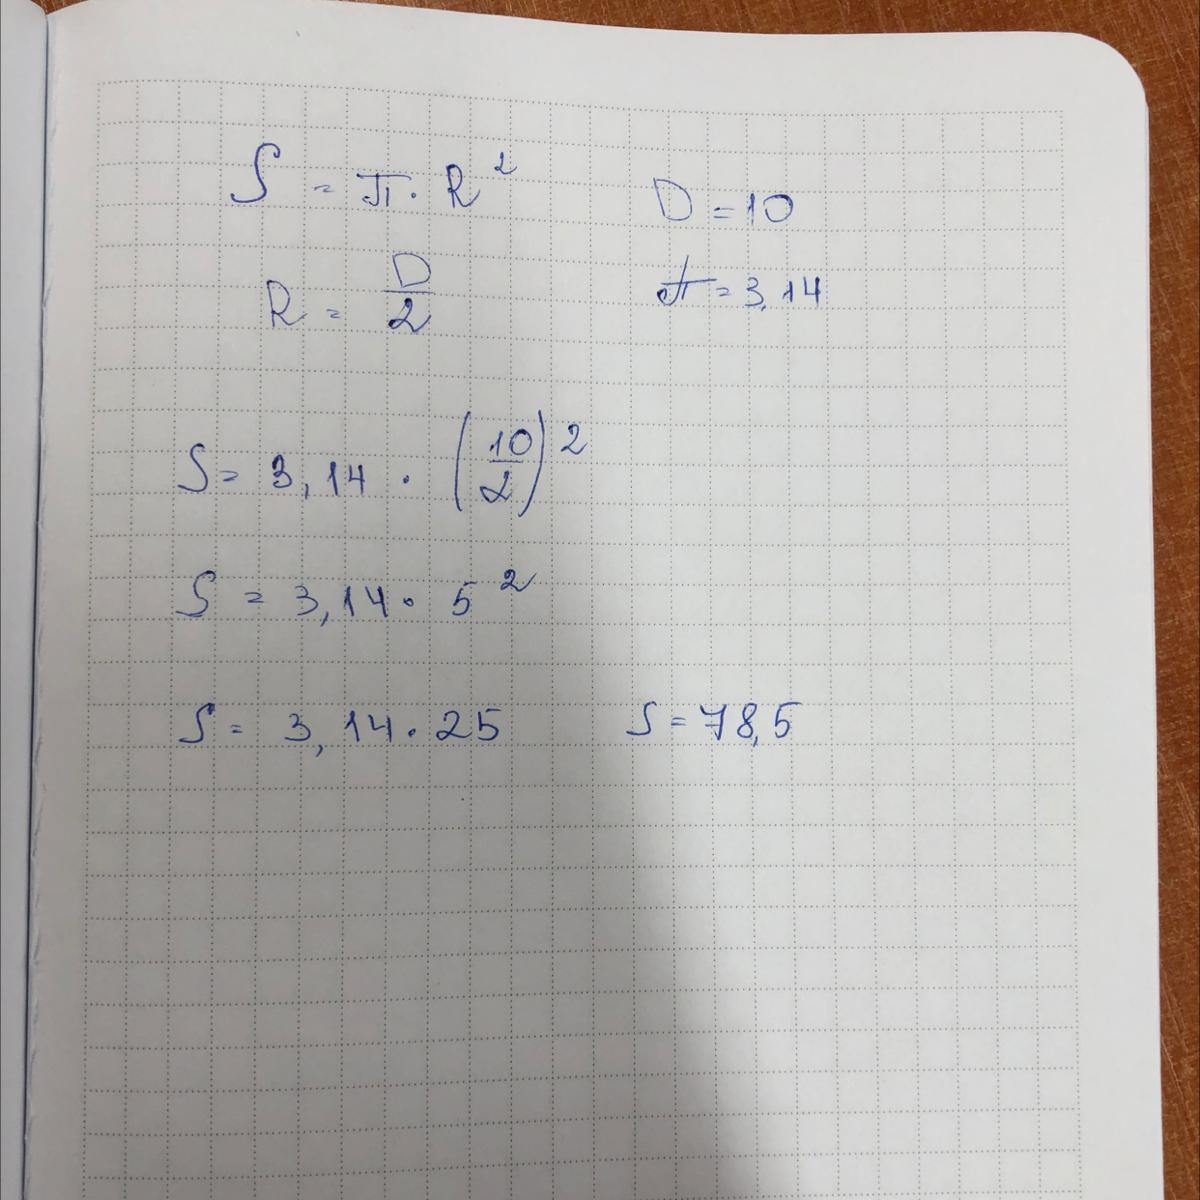 S = π · R²
D = 10
R = D/2
π = 3,14
S = 3,14 · (10/2)²
S = 3,14 · 5²
S = 3,14 · 25
S = 78,5